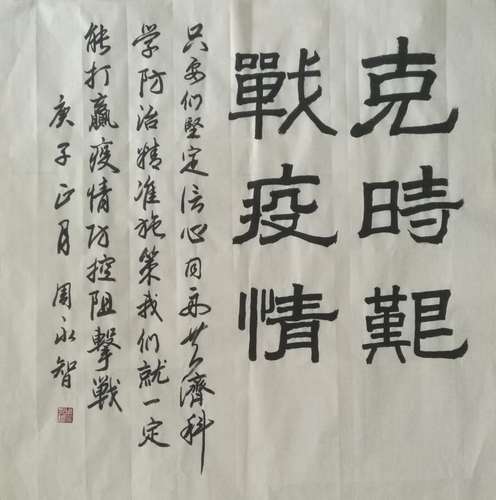 克時艱
戰疫情
只要们堅定信心同舟共濟科
学防治精准施策我们就一定
能打贏疫情防控阻擊戦
庚子正月 周永智